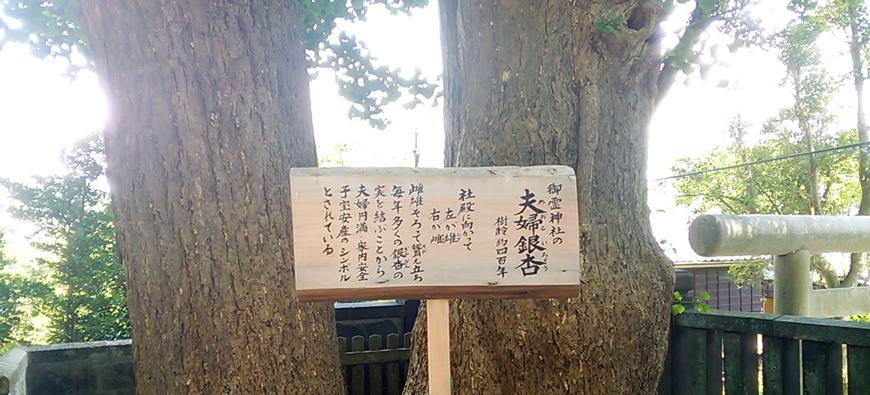 御霊神社の
夫婦銀杏
めおといちょう
樹齢約四百年
社殿に向かって
左が雄
右が雌
雌雄そろって聳え立ち
毎年多くの銀杏の
実を結ぶことから
夫婦円満 家内安全
子宝安産のシンボル
とされている